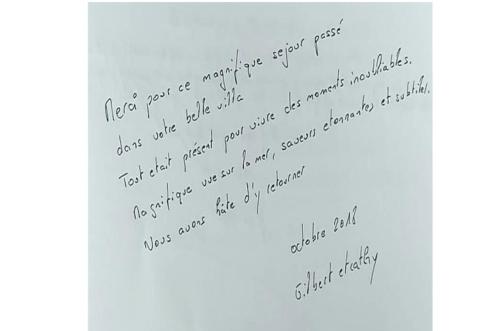 Merci pour ce magnifique sejour passé
dans votre belle villa
Tout etait présent pour vivre des moments inoubliables.
Magnifique vue sur la mer, saveurs etonnantes et subtiles.
Nous avons hâte d'y retourner
octobre 2018
Gilbert et cathy